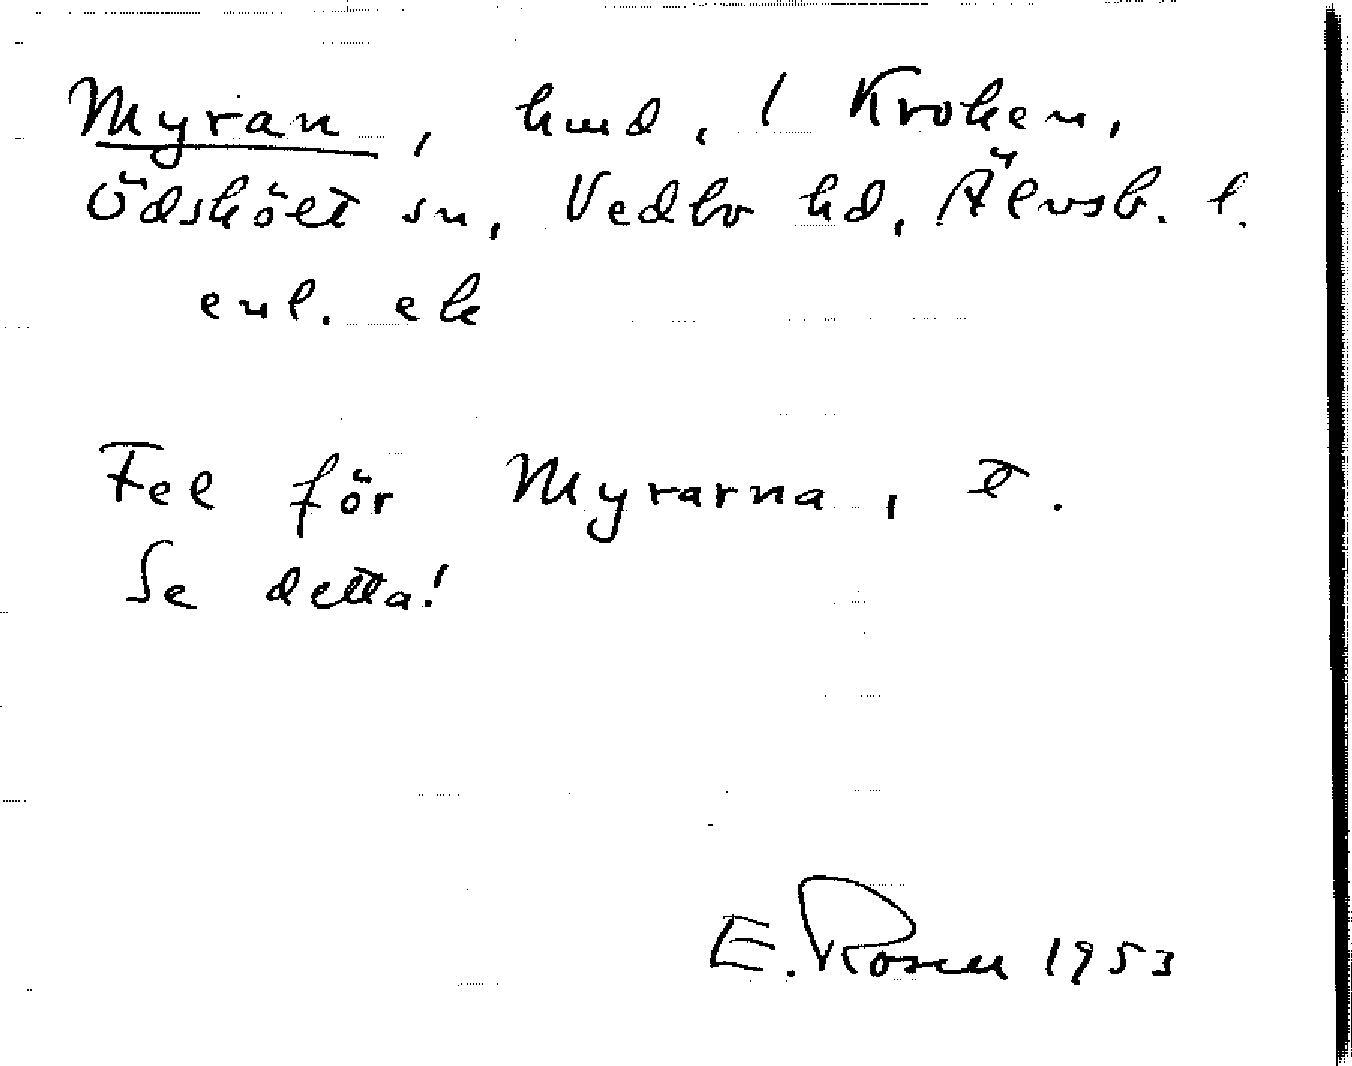 Myran, hmd, 1 Kroken,
Ödskölt sn, Vedbo hd, Älvsb. l.
enl. ek
Fel för Myrarna, T.
Se detta!
E. Rosell 1953